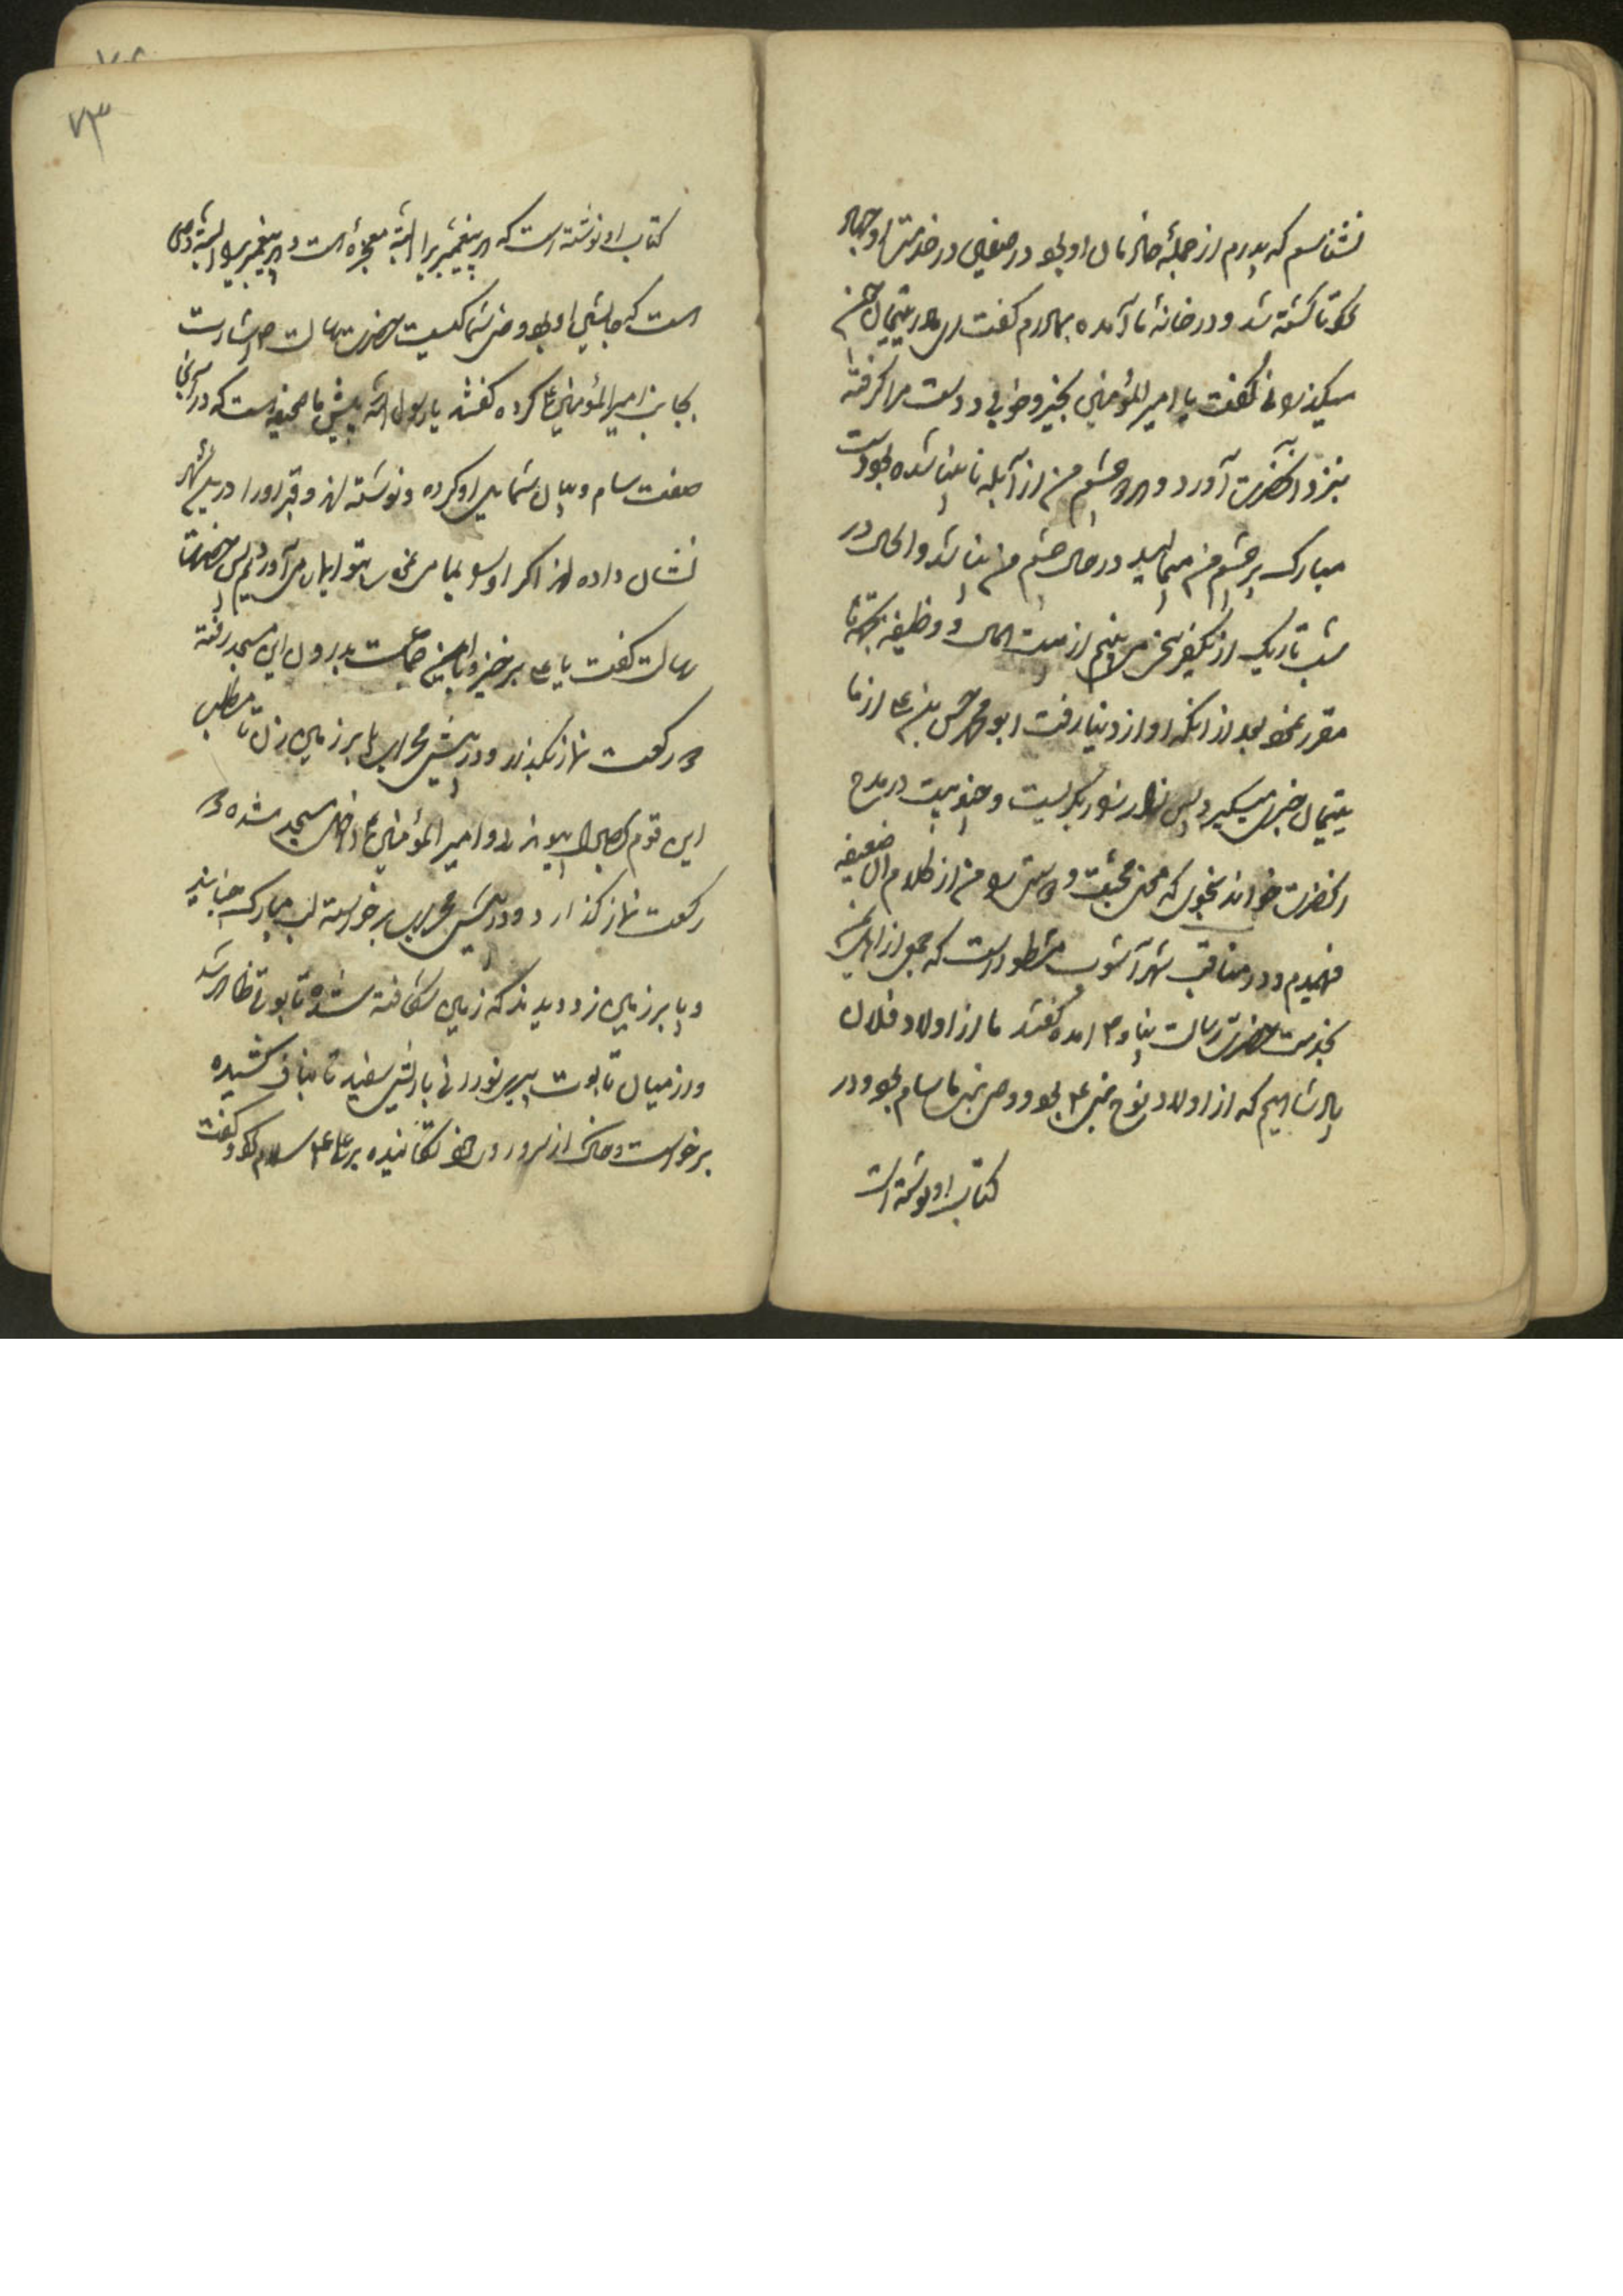 نشناسم که پدرم از جمله خادمان او بود در صفین در خدمتش او جهاد
کرد تا کشته شد و در خانه ما آمده بمادرم گفت ای مادر یتیمان چون
میگذرانی گفت یا امیر المؤمنین بخیر و خوبی و دست مرا گرفته
بنزد آنحضرت آورد و هر دو چشم من از آبله نابینا شده بود دست
مبارک بر چشم من مالید در حال چشم من بینا شد و الحال در
شب تاریک از یکفرسخ می بینم از بیت المال و وظیفه بجهة ما
مقرر نمود بعد از آنکه او از دنیا رفت ابو محمد حسن بن علی از ما
یتیمان خبر میگیرد پس زار زار بگریست و چند بیت در مدح
آنحضرت خواند بنحوی که
فهمیدم و در مناقب شهر آشوب مسطور است که جمعی از اهل یمن
بخدمت حضرت رسالت پناه آمده گفتند ما از اولاد فلان
پادشاهیم که از اولاد نوح نبی بود و وصی نبی ما سام بود و در
کتاب او نوشته است
۷۳
کتاب او نوشته است که هر پیغمبری را البته معجزه است و هر پیغمبری را البته وصی
است که جانشین او بود وصی شما کیست حضرت رسالت اشارت
بجانب امیر المؤمنین کرده گفتند یا رسول الله پیش ما صحیفه است که در آنجا
صفت سام و بیان شمایل او کرده و نوشته اند و قبر او را در
نشان داده اند اگر او را بما می نمایی بتو ایمان می آوردیم پس حضرت
رسالت گفت یا علی برخیز و با این جماعت بدرون این مسجد رفته
دو رکعت نماز بگذار و در پیش محراب پا بر زمین زن تا مطلب
این قوم بحصول پیوندد و امیر المؤمنین داخل مسجد شده دو
رکعت نماز گذارد و در پیش محراب برخواسته لب مبارک جنبانید
و پا بر زمین زد دیدند که زمین شکافته شده تابوتی ظاهر شد
و از میان تابوت پیری نورانی با ریش سفید تا بناف کشیده
برخواست و خاک از سر و روی خود تکانیده بر علی سلام کرد و گفت